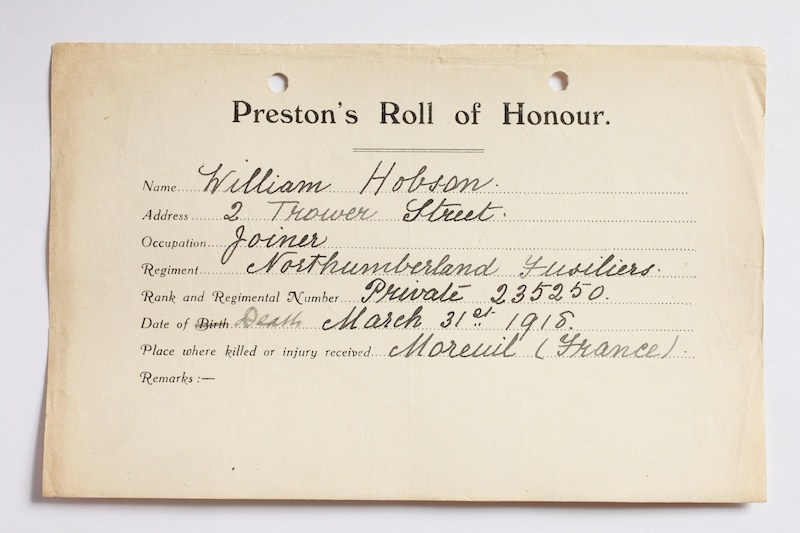 Preston's Roll of Honour.
Name.....William Hobson.
Address.....2 Trower Street.
Occupation.....Joiner
Regiment.....Northumberland Fusiliers.
Rank and Regimental Number.....Private 235250.
Date of Birth Death March 31st 1918.
Place where killed or injury received....Moreuil (France).
Remarks :—